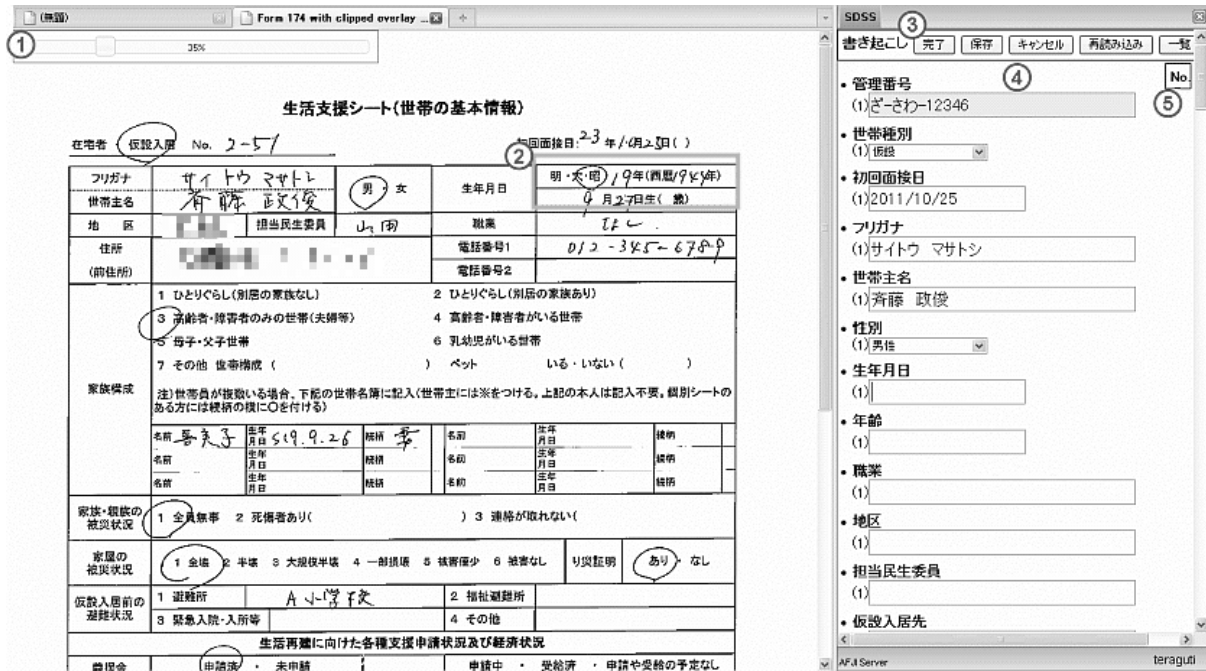 (無題)
Form 174 with clipped overlay ...
SDSS
① 35%
③
書き起こし 完了 保存 キャンセル 再読み込み 一覧
④
No.
⑤
生活支援シート(世帯の基本情報)
在宅者・仮設入居 No. 2-51
初回面接日:23年10月25日( )
②
フリガナ サイトウ マサトシ
世帯主名 斉藤 政俊
男・女
生年月日
明・大・昭 19年(西暦1944年)
9月27日生( 歳)
地 区
担当民生委員 山田
職業 なし.
住所
(前住所)
電話番号1 012-345-6789
電話番号2
家族構成
1 ひとりぐらし(別居の家族なし) 2 ひとりぐらし(別居の家族あり)
3 高齢者・障害者のみの世帯(夫婦等) 4 高齢者・障害者がいる世帯
5 母子・父子世帯 6 乳幼児がいる世帯
7 その他 世帯構成 ( ) ペット いる・いない ( )
注)世帯員が複数いる場合、下記の世帯名簿に記入(世帯主には※をつける。上記の本人は記入不要。個別シートの
ある方には続柄の横に○を付ける)
名前 生年月日 S19.9.26 続柄 妻 名前 生年月日 続柄
名前 生年月日 続柄 名前 生年月日 続柄
名前 生年月日 続柄 名前 生年月日 続柄
家族・親族の被災状況
1 全員無事 2 死傷者あり( ) 3 連絡が取れない(
家屋の被災状況
1 全壊 2 半壊 3 大規模半壊 4 一部損壊 5 被害僅少 6 被害なし
り災証明 あり・なし
仮設入居前の避難状況
1 避難所 A小学校 2 福祉避難所
3 緊急入院・入所等 4 その他
生活再建に向けた各種支援申請状況及び経済状況
義捐金 申請済 ・ 未申請 申請中 ・ 受給済 ・ 申請や受給の予定なし
• 管理番号
(1)ざーさわー12346
• 世帯種別
(1)仮設
• 初回面接日
(1)2011/10/25
• フリガナ
(1)サイトウ マサトシ
• 世帯主名
(1)斉藤 政俊
• 性別
(1)男性
• 生年月日
(1)
• 年齢
(1)
• 職業
(1)
• 地区
(1)
• 担当民生委員
(1)
• 仮設入居先
AFJI Server
teraguti